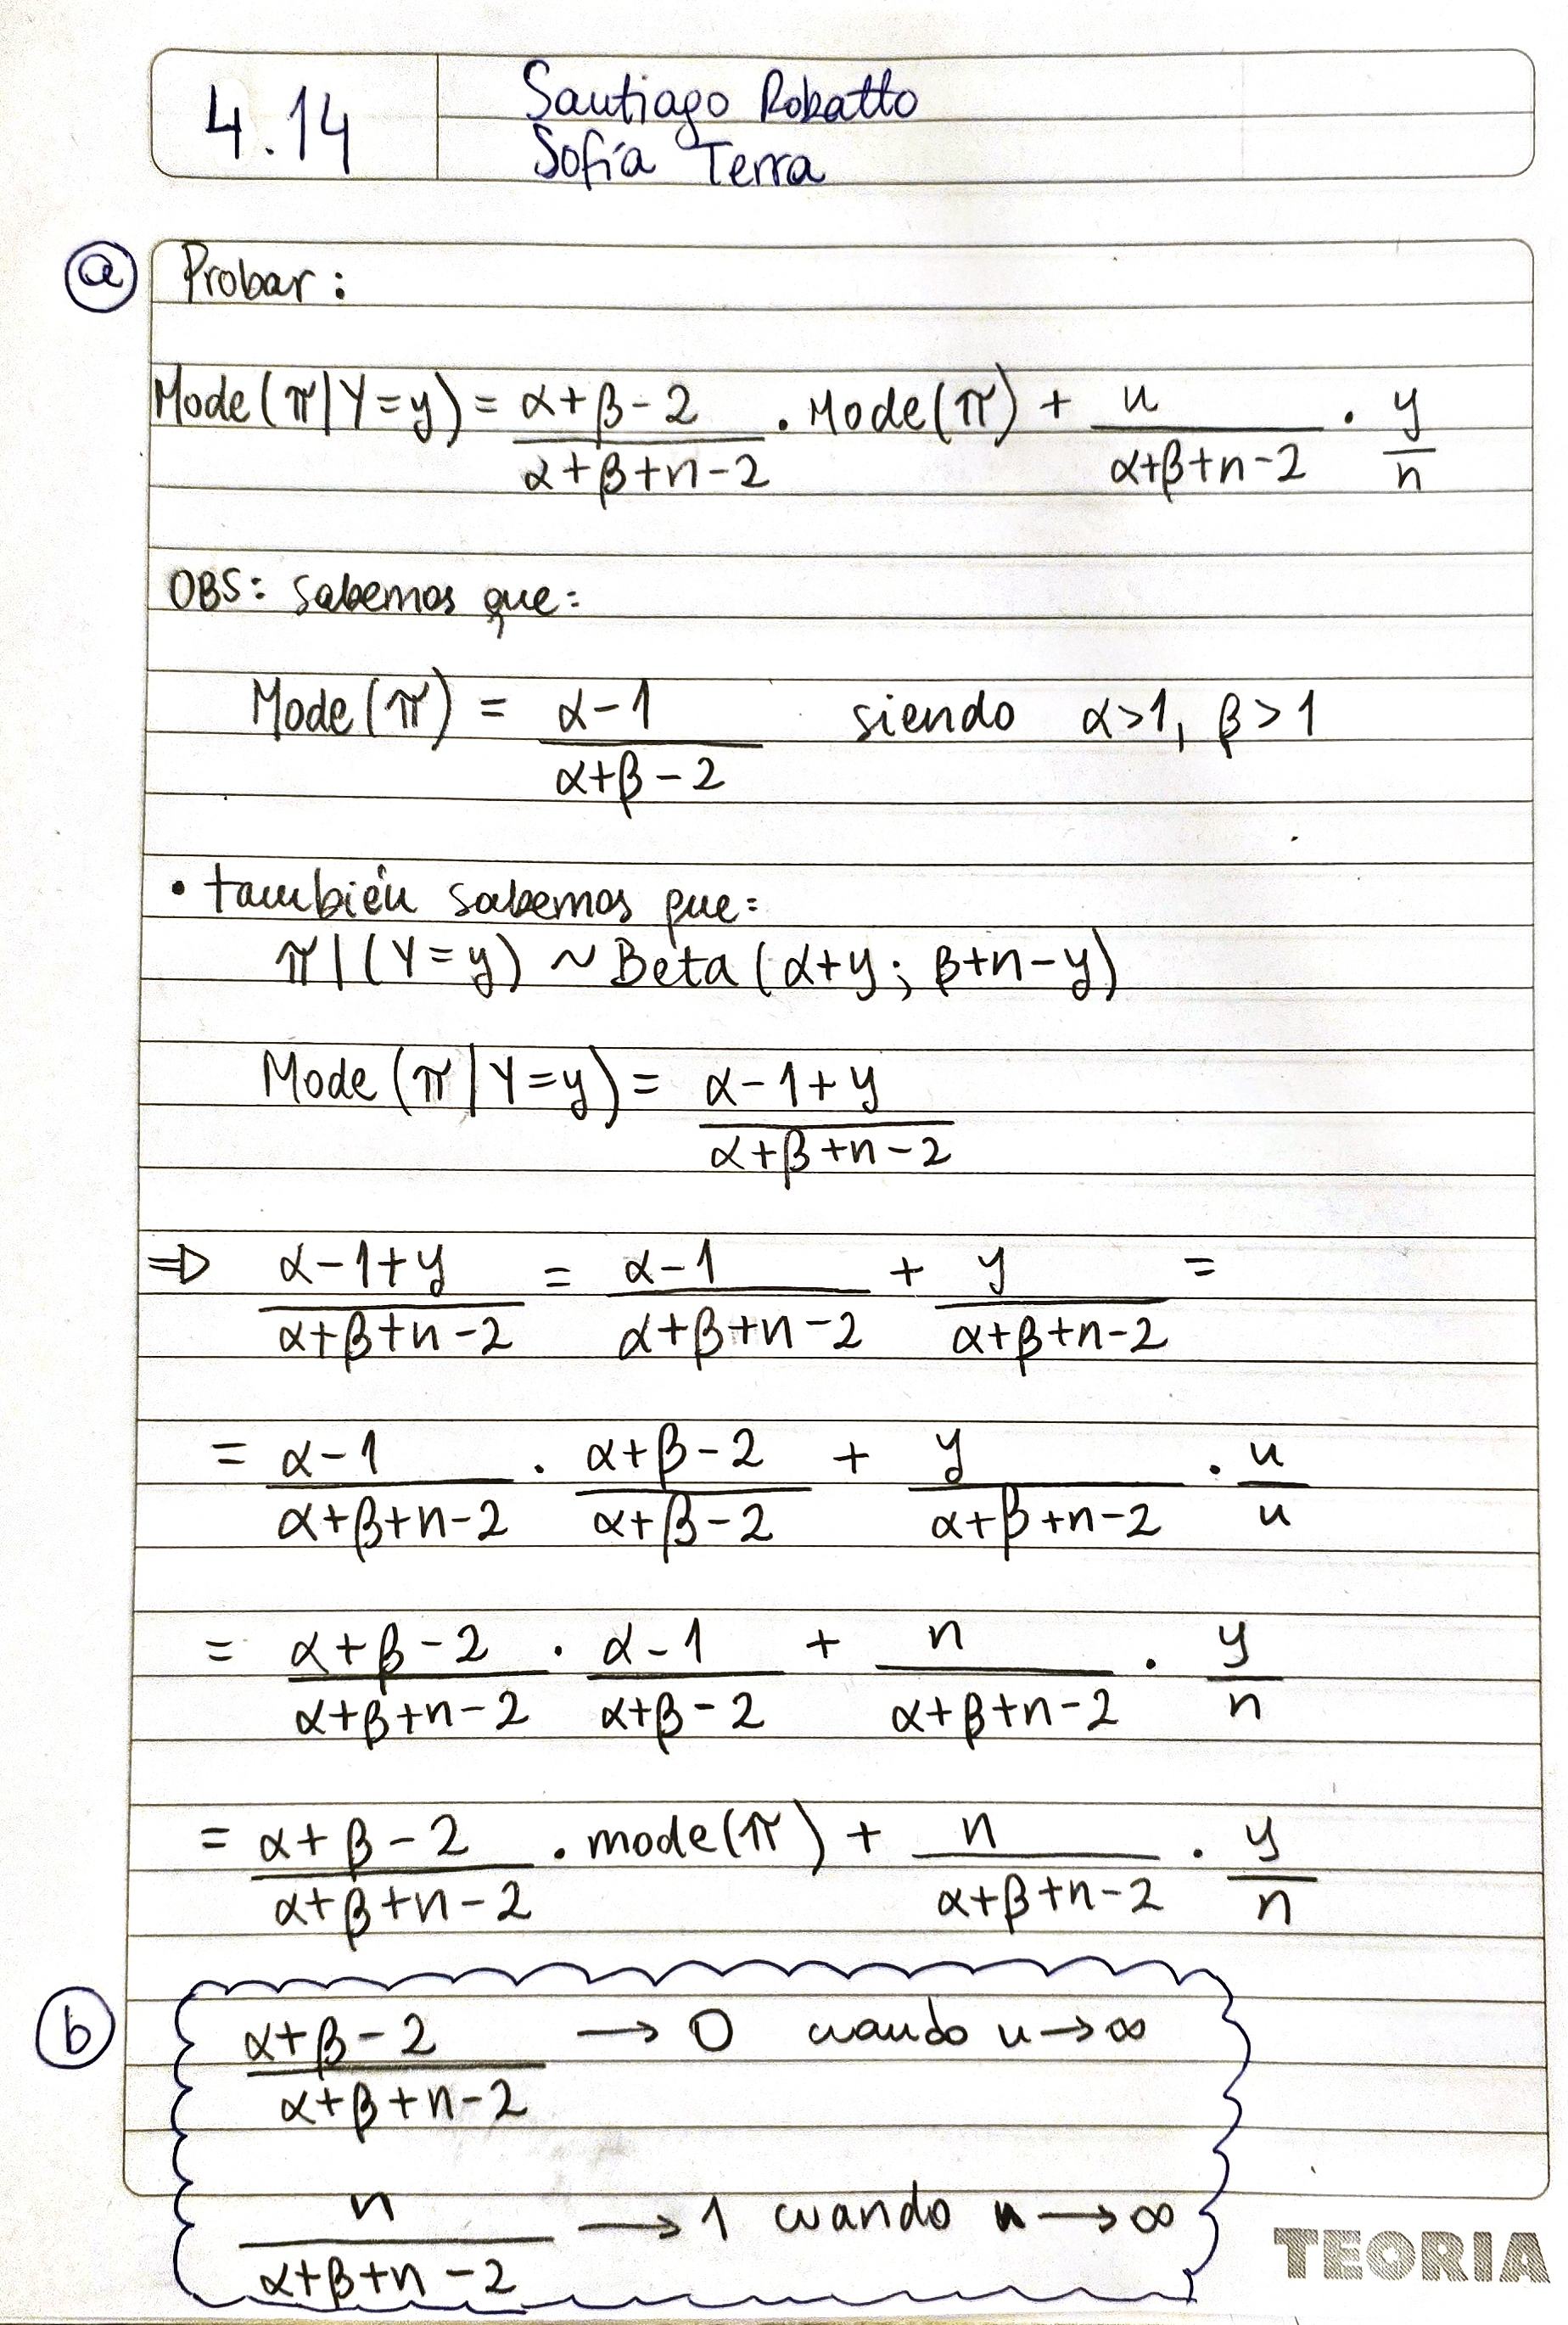 4.14
Santiago Robatto
Sofía Terra
(a) Probar:
Mode(π|Y=y) = (α+β-2)/(α+β+n-2) · Mode(π) + n/(α+β+n-2) · y/n
OBS: Sabemos que:
Mode(π) = (α-1)/(α+β-2) siendo α>1, β>1
• también sabemos que:
π|(Y=y) ~ Beta(α+y; β+n-y)
Mode(π|Y=y) = (α-1+y)/(α+β+n-2)
⇒ (α-1+y)/(α+β+n-2) = (α-1)/(α+β+n-2) + y/(α+β+n-2) =
= (α-1)/(α+β+n-2) · (α+β-2)/(α+β-2) + y/(α+β+n-2) · n/n
= (α+β-2)/(α+β+n-2) · (α-1)/(α+β-2) + n/(α+β+n-2) · y/n
= (α+β-2)/(α+β+n-2) · mode(π) + n/(α+β+n-2) · y/n
(b) (α+β-2)/(α+β+n-2) → 0 cuando n→∞
n/(α+β+n-2) → 1 cuando n→∞
TEORIA